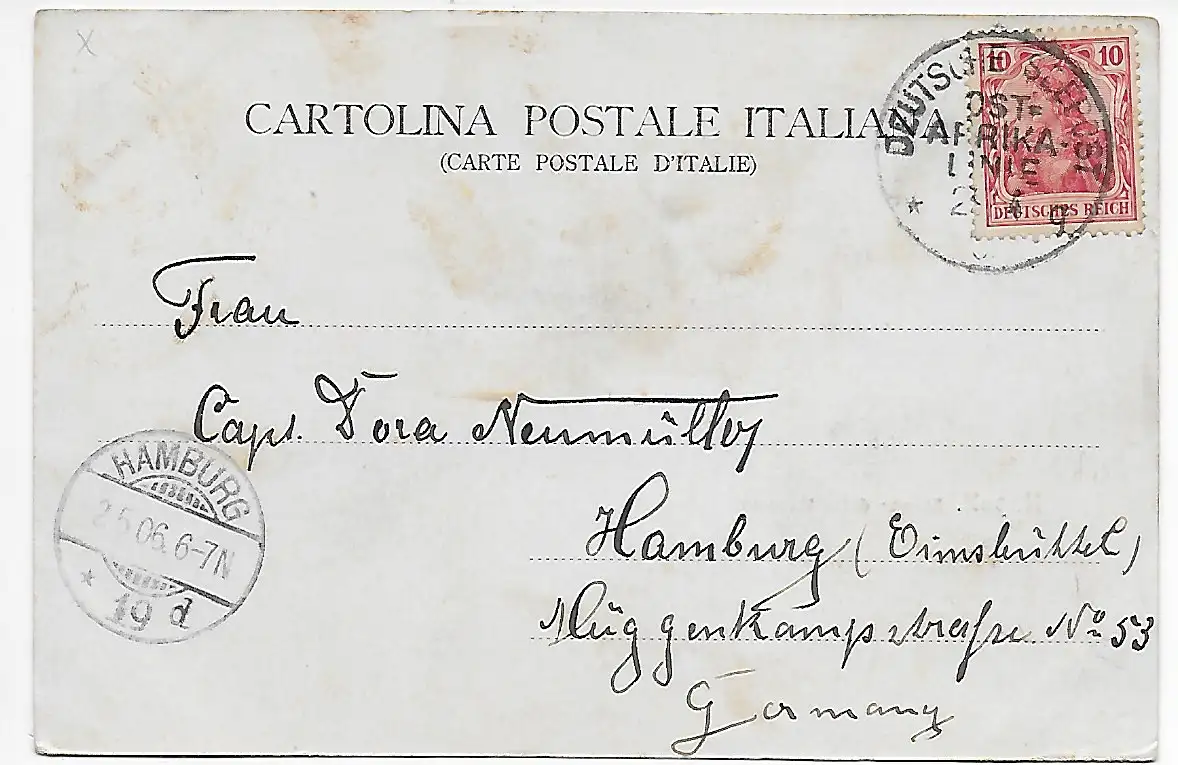 x
CARTOLINA POSTALE ITALIANA
(CARTE POSTALE D'ITALIE)
10 10
DEUTSCHES REICH
DEUTSCHE SEEPOST
OST-
AFRIKA-
LINIE
Frau
Capt. Dora Neumüller
Hamburg (Eimsbüttel)
Müggenkampstraße No 53
Germany
HAMBURG
2.5.06. 6-7N
* 19 d